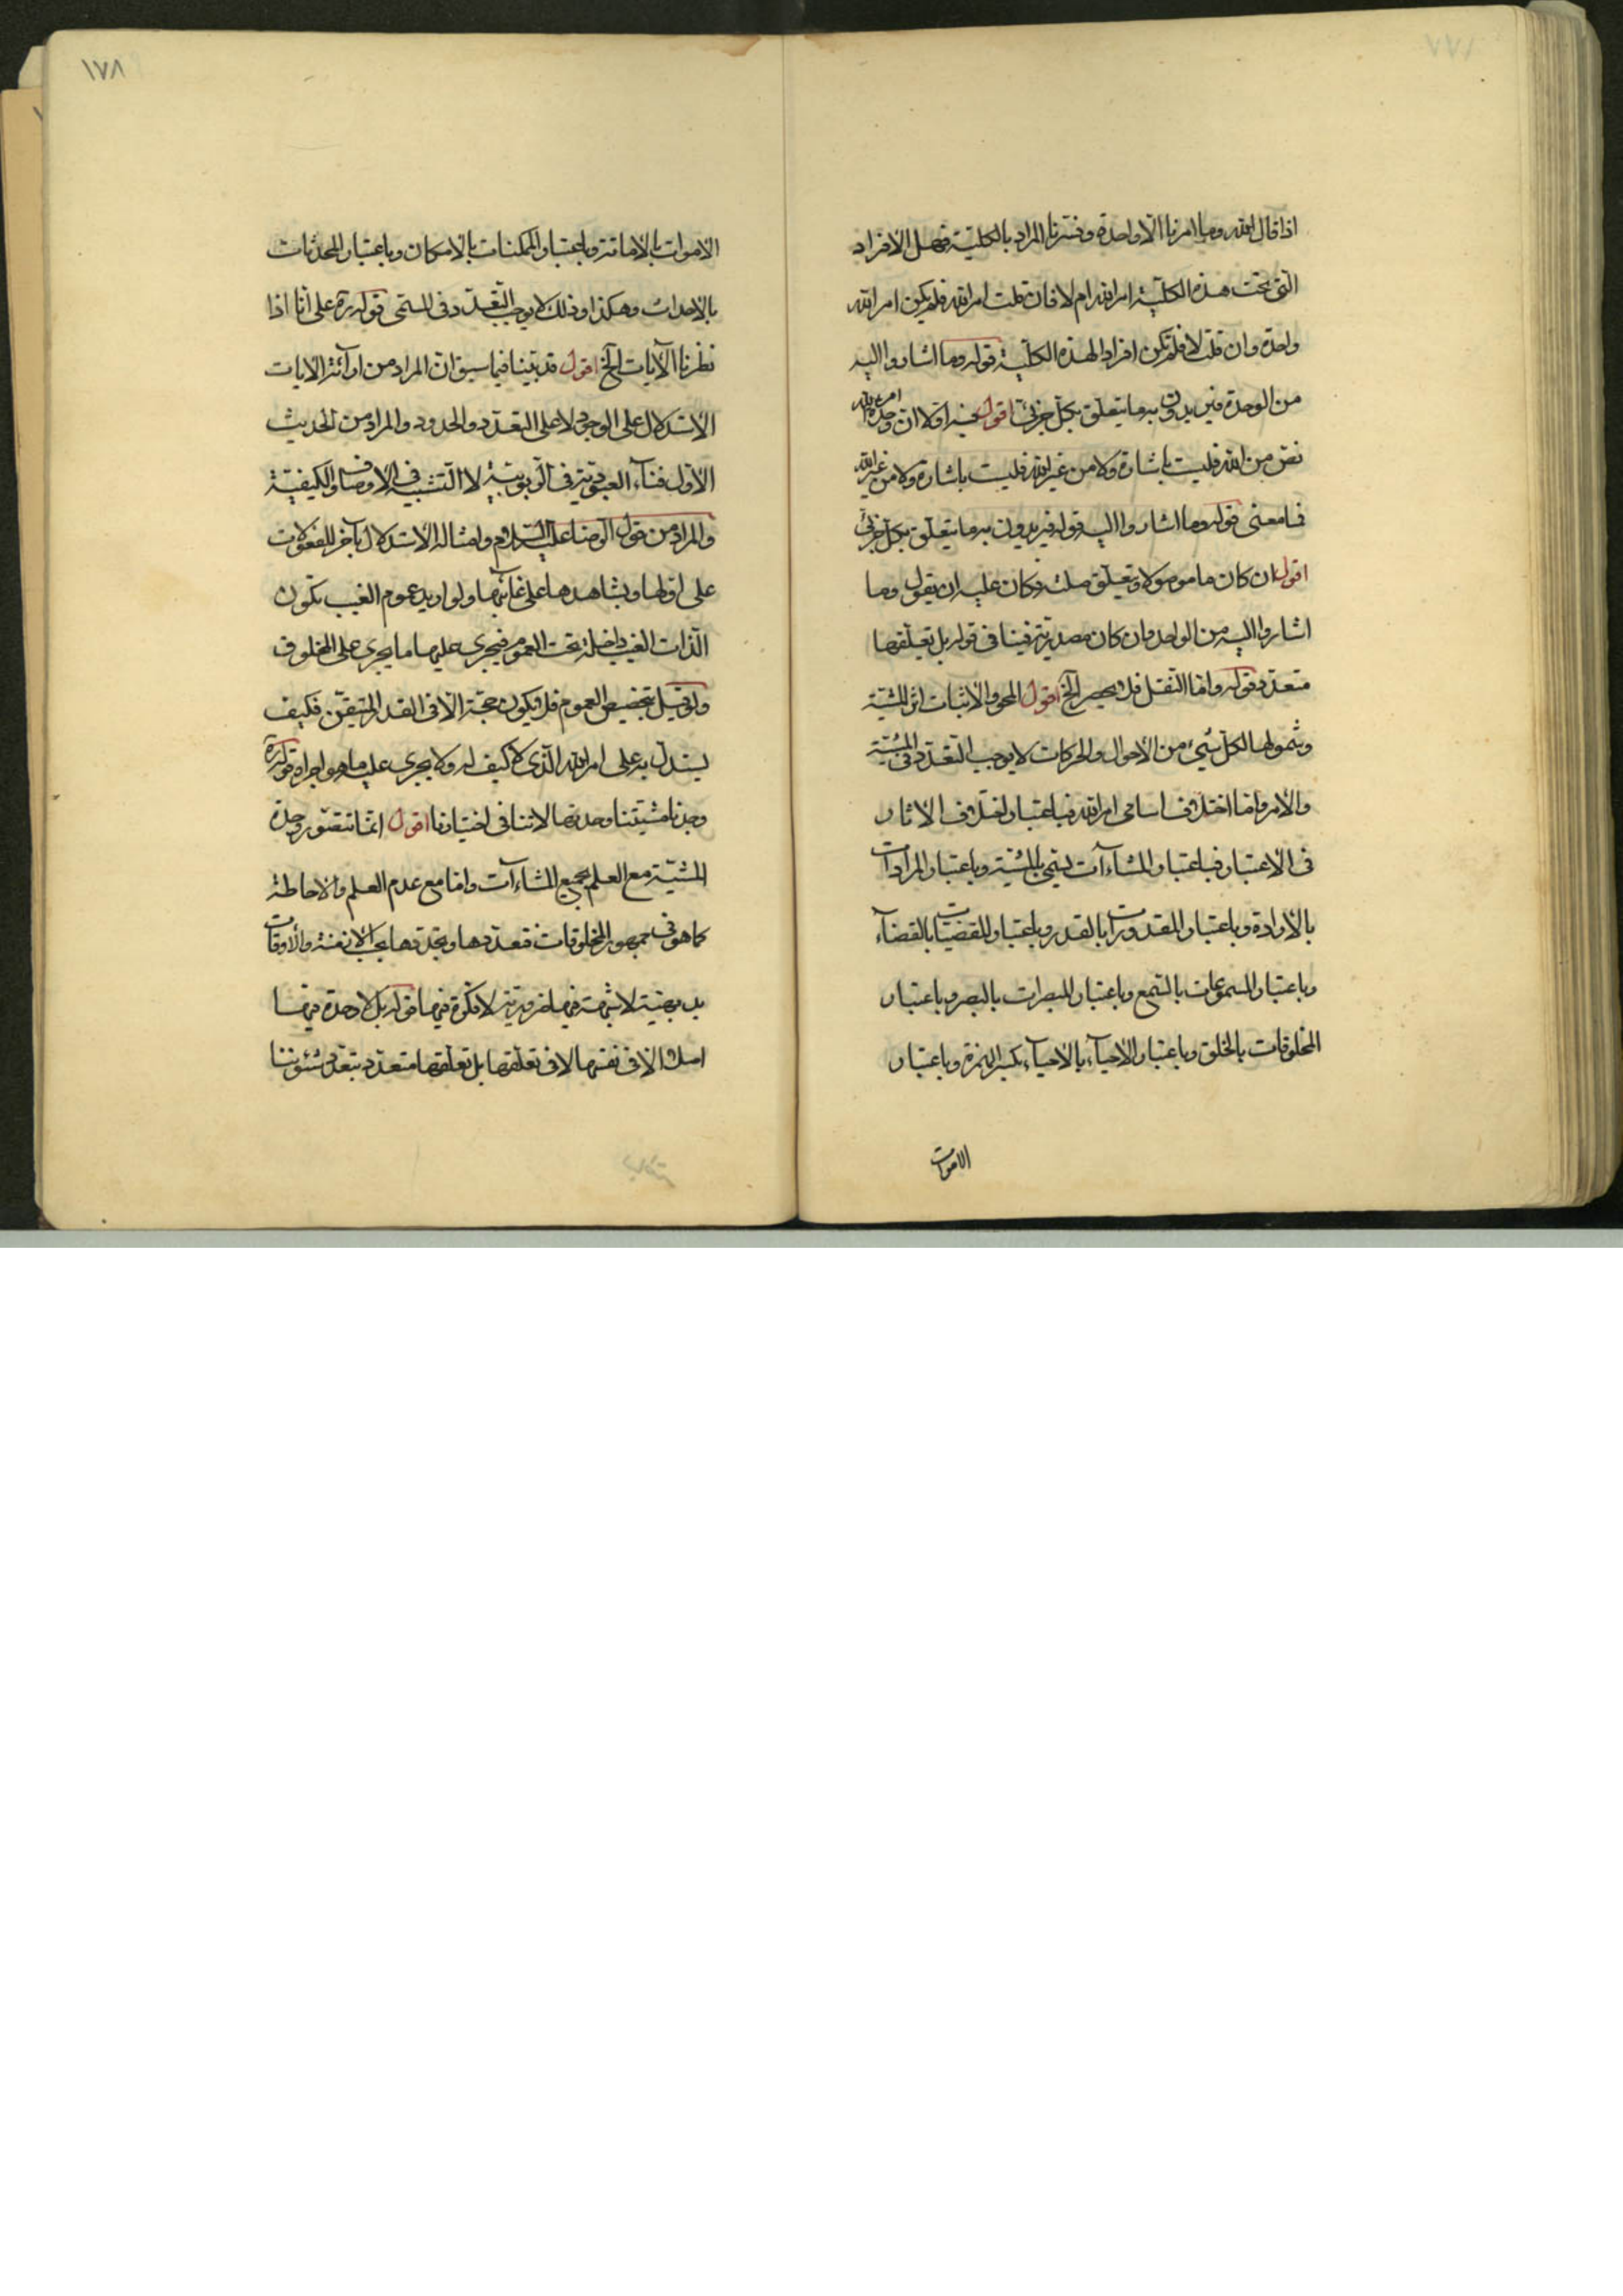 ١٧٧
اذا قال الله وما امرنا الا واحدة وفسرنا المراد بالكلية فهل الافراد
التى تحت هذه الكلية امر الله ام لا فان قلت امر الله فلم يكن امر الله
واحدة وان قلت لا فلم تكن افراد الهذه الكلية قوله وما اشاروا اليه
من الوحدة فيريدون به ما يتعلق بكل جزئى اقول فيه اولا ان وحدة امر الله
نص من الله فليست باشارة ولا من غير الله فليست باشارة ولا من غير الله
فما معنى قوله وما اشاروا اليه قوله فيريدون به ما يتعلق بكل جزئى
اقول ان كان ما موصولا ويتعلق صلته فكان عليه ان يقول وما
اشاروا اليه من الواحد وان كان مصدرية فينافى قوله بل تعلقها
متعدد قوله واما النقل فلا يحصر الخ اقول المحو والاثبات اثر المشية
وشمولها لكل شىء من الاحوال والحركات لا يوجب التعدد فى المشية
والامر واما اختلاف اسامى امر الله فباعتبار اختلاف الاثار
فى الاعتبار فباعتبار المشاءات يسمى بالمشية وباعتبار المرادات
بالارادة وباعتبار المقدورات بالقدر وباعتبار المقضيات بالقضاء
وباعتبار المسموعات بالسمع وباعتبار المبصرات بالبصر وباعتبار
المخلوقات بالخلق وباعتبار الاحياء بالاحياء بكسر الهمزة وباعتبار
الاموات
١٧٨
الاموات بالاماتة وباعتبار الممكنات بالامكان وباعتبار المحدثات
بالاحداث وهكذا وذلك لا يوجب التعدد فى المسمى قوله ره على انا اذا
نظرنا الآيات الخ اقول قد بينا فيما سبق ان المراد من ارائة الايات
الاستدلال على الوجود لا على التعدد والحدود والمراد من الحديث
الاول فناء العبودية فى الربوبية لا التشبيه فى الاوصاف والكيفية
والمراد من قول الرضا عليه السلام وامثاله الاستدلال بآخر المفعولات
على اولها وبشاهدها على غائبها ولو اريد عموم الغيب تكون
الذات الغيب داخلة تحت العموم فيجرى عليها ما يجرى على المخلوق
ولو قيل بتخصيص العموم فلا يكون حجة الا فى القدر المتيقن فكيف
يستدل به على امر الله الذى لا كيف له ولا يجرى عليه ما هو اجراه قوله ره
وجدنا مشيتنا وحدتها لا تنافى اختيارنا اقول انما تتصور وحدة
المشية مع العلم بجميع المشاءات واما مع عدم العلم والاحاطة
كما هو فى جمهور المخلوقات فتعددها وتجددها بحسب الازمنة والاوقات
بديهية لا شبهة فيها ضرورية لا فكرة فيها قوله بل لا وحدة فيها
اصلا الا فى نفسها لا فى تعلقها بل تعلقها متعدد بتعدد شئوننا